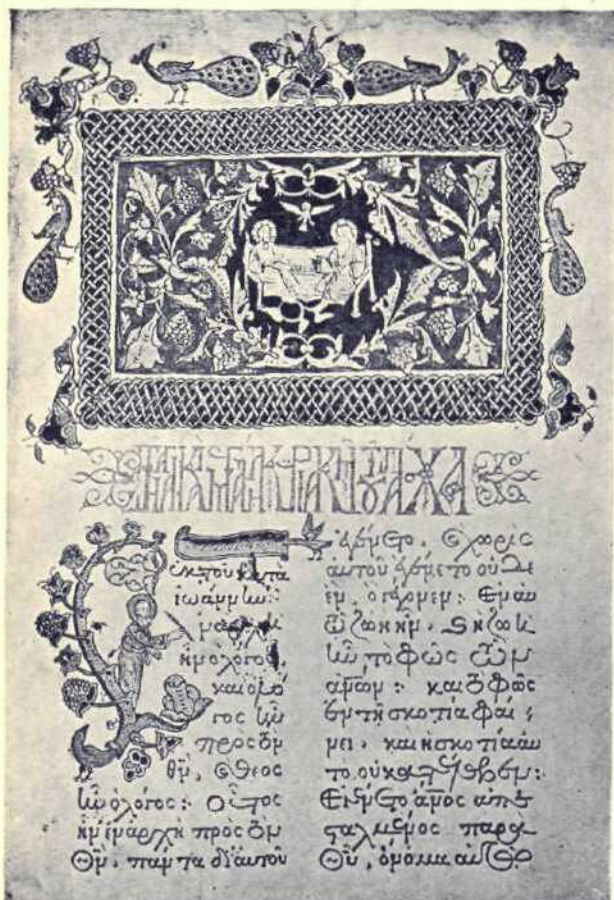 τῇ ἁγίᾳ καὶ μεγάλῃ κυριακῇ τοῦ πάσχα
ἐκ τοῦ κατα
ἰωάννην:
Ἐν ἀρχῆ
ἦν ὁ λόγος,
καὶ ὁ λό
γος ἦν
πρὸς τὸν
θν, ϗ θεος
ἦν ὁ λόγος: οὗτος
ἦν ἐν ἀρχῆ πρὸς τὸν
θν, πάντα δι αὐτοῦ
ἐγένετο, ϗ χωρὶς
αὐτοῦ ἐγένετο οὐδὲ
ἓν ὃ γέγονεν: ἐν αὐ
τῶ ζωὴ ἦν, ϗ ἡ ζωὴ
ἦν τὸ φῶς τῶν
ἀνων: καὶ τὸ φῶς
ἐν τῆ σκοτία φαί
νει, καὶ ἡ σκοτία αὐ
τὸ οὐ κατέλαβεν:
Ἐγένετο ἄνος ἀπε
σταλμένος παρὰ
θυ, ὄνομα αὐτῶ